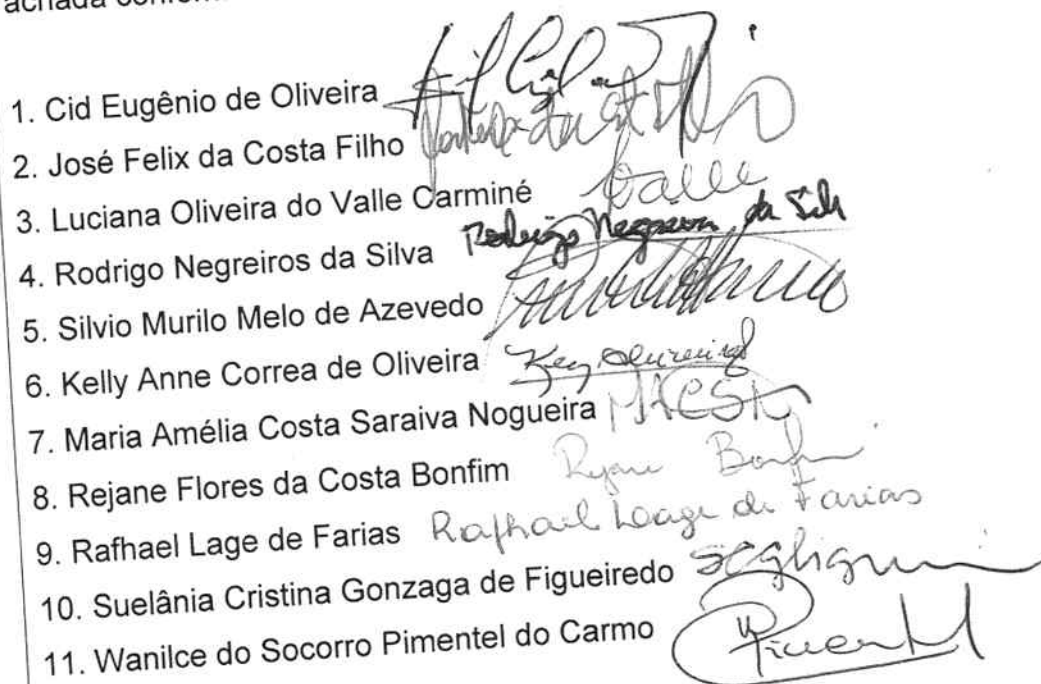 achada
1. Cid Eugênio de Oliveira
2. José Felix da Costa Filho
3. Luciana Oliveira do Valle Carminé Valle
4. Rodrigo Negreiros da Silva Rodrigo Negreiros da Silva
5. Silvio Murilo Melo de Azevedo
6. Kelly Anne Correa de Oliveira
7. Maria Amélia Costa Saraiva Nogueira MACSN
8. Rejane Flores da Costa Bonfim Rejane Bonfim
9. Rafhael Lage de Farias Rafhael Lage de Farias
10. Suelânia Cristina Gonzaga de Figueiredo
11. Wanilce do Socorro Pimentel do Carmo